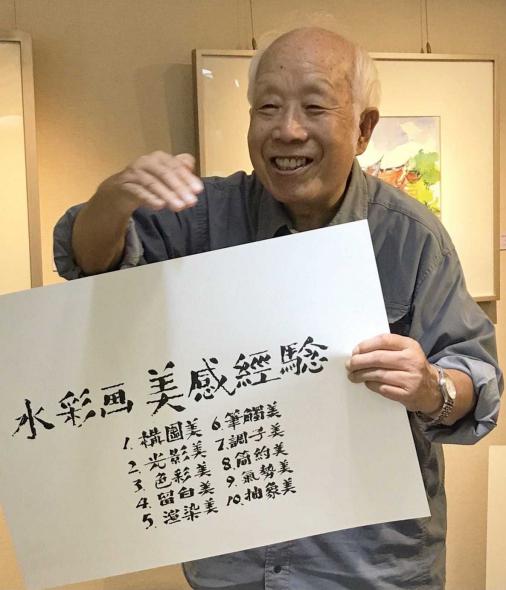 水彩画美感經驗
1. 構圖美
2. 光影美
3. 色彩美
4. 留白美
5. 渲染美
6. 筆觸美
7. 調子美
8. 简約美
9. 氣勢美
10. 抽象美